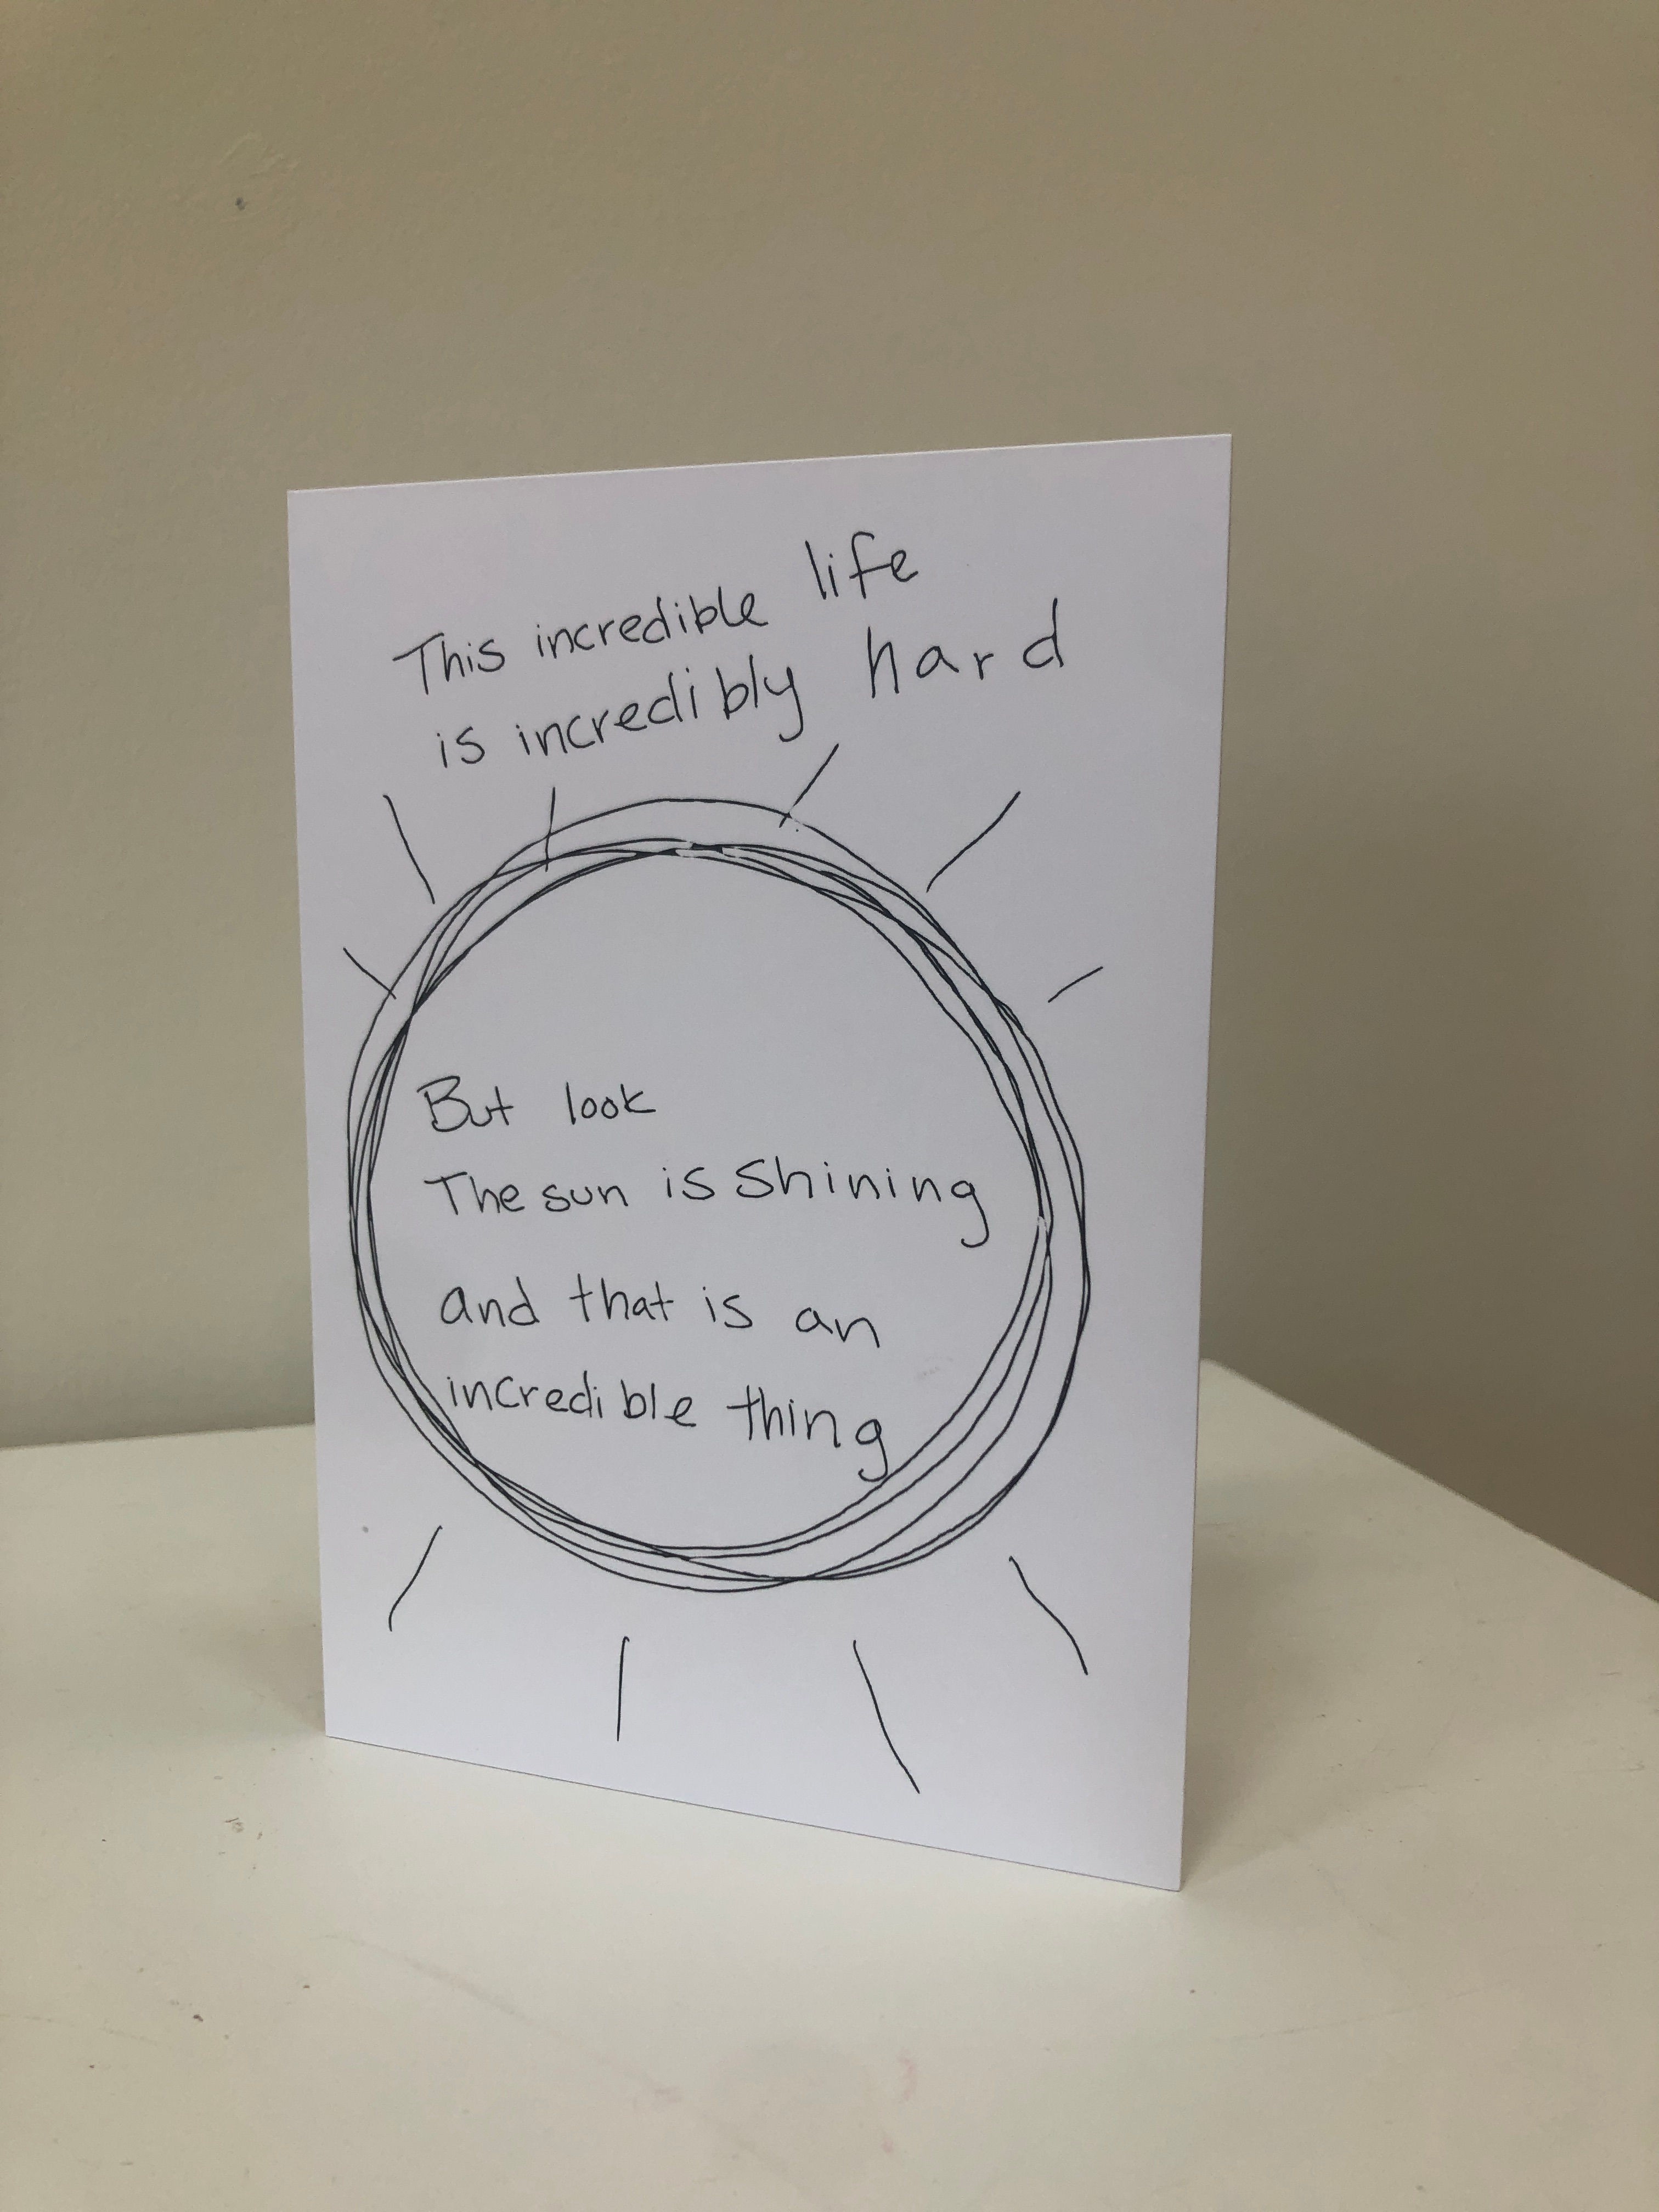 This incredible life
is incredibly hard
But look
The sun is shining
and that is an
incredible thing